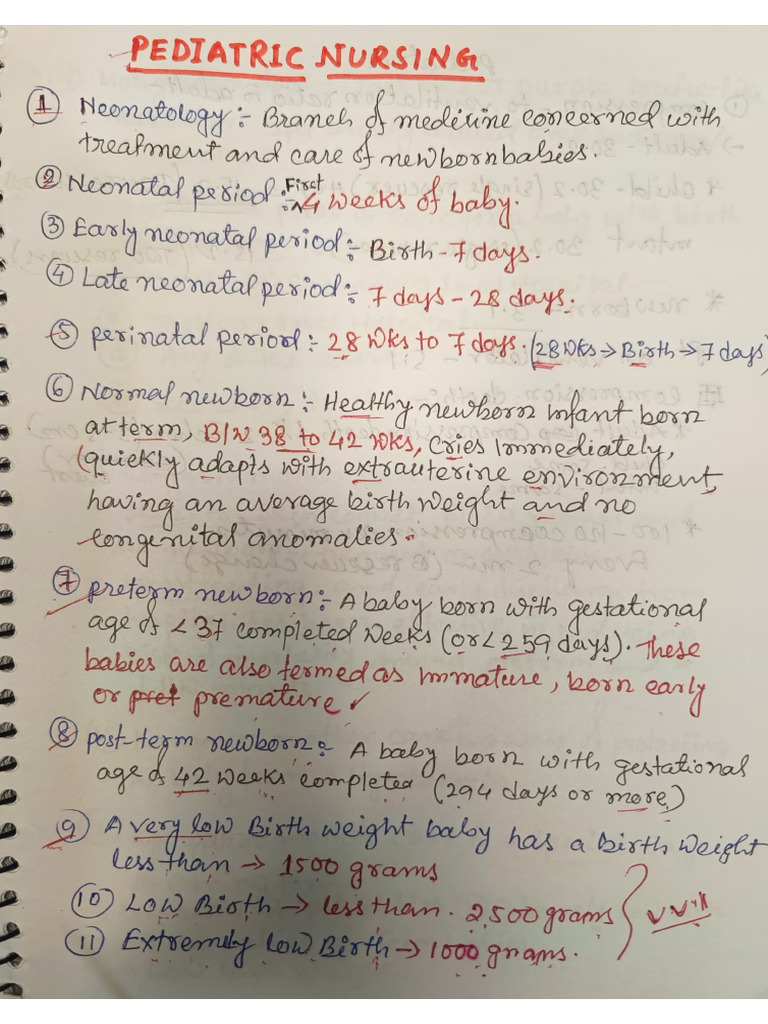 PEDIATRIC NURSING
1 Neonatology :- Branch of medicine concerned with
treatment and care of newborn babies.
2 Neonatal period :- First 4 weeks of baby.
3 Early neonatal period :- Birth - 7 days.
4 Late neonatal period :- 7 days - 28 days.
5 perinatal period :- 28 Wks to 7 days. (28 Wks → Birth → 7 days)
6 Normal newborn :- Healthy newborn Infant born
at term, B/W 38 to 42 wks, Cries Immediately,
(quickly adapts with extrauterine environment,
having an average birth weight and no
congenital anomalies.
7 preterm newborn :- A baby born with gestational
age of < 37 completed weeks (or < 259 days). These
babies are also termed as Immature, born early
or pret premature ✓
8 post-term newborn :- A baby born with gestational
age of 42 weeks completed (294 days or more)
9 A very low Birth weight baby has a Birth weight
less than → 1500 grams
10 Low Birth → less than. 2,500 grams
11 Extremely low Birth → 1000 grams.